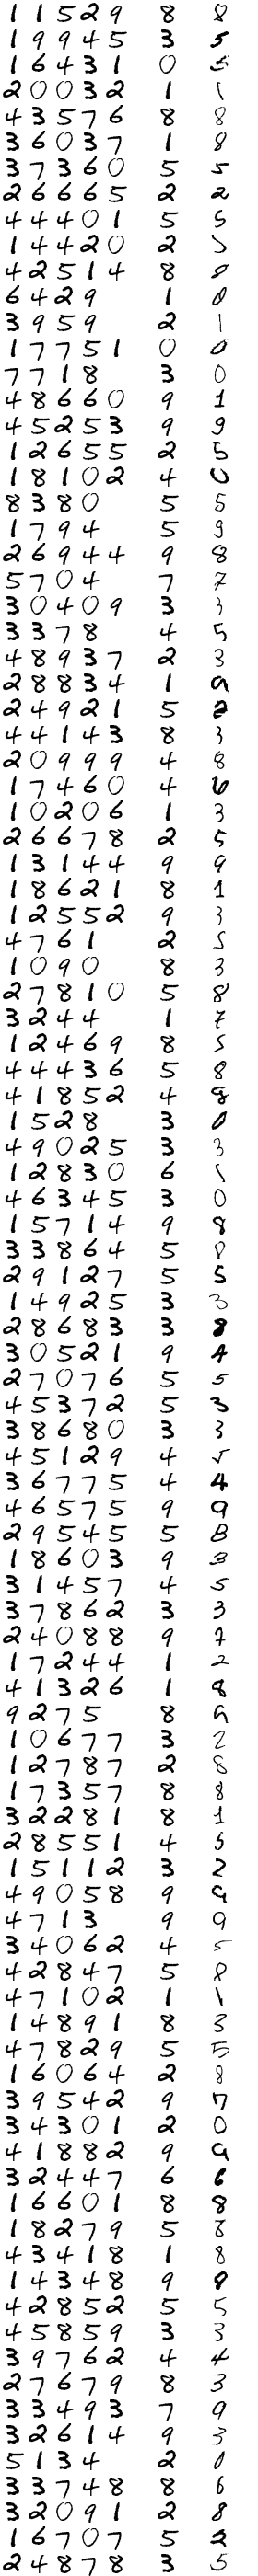 11529 8 8
19945 3 5
16431 0 5
20032 1 1
43576 8 8
36037 1 8
37360 5 5
26665 2 2
44401 5 5
14420 2 5
42514 8 8
6429 1 0
3959 2 1
17751 0 0
7718 3 0
48660 9 1
45253 9 9
12655 2 5
18102 4 0
8380 5 5
1794 5 9
26944 9 8
5704 7 7
30409 3 3
3378 4 5
48937 2 3
28834 1 9
24921 5 2
44143 8 3
20999 4 8
17460 4 6
10206 1 3
26678 2 5
13144 9 9
18621 8 1
12552 9 3
4761 2 5
1090 8 3
27810 5 8
3244 1 7
12469 8 5
44436 5 8
41852 4 8
1528 3 0
49025 3 3
12830 6 1
46345 3 0
15714 9 8
33864 5 8
29127 5 5
14925 3 3
28683 3 8
30521 9 4
27076 5 5
45372 5 3
38680 3 3
45129 4 5
36775 4 4
46575 9 9
29545 5 8
18603 9 3
31457 4 5
37862 3 3
24088 9 7
17244 1 2
41326 1 8
9275 8 9
10677 3 2
12787 2 8
17357 8 8
32281 8 1
28551 4 5
15112 3 2
49058 9 9
4713 9 9
34062 4 5
42847 5 8
47102 1 1
14891 8 3
47829 5 5
16064 2 8
39542 9 7
34301 2 0
41882 9 9
32447 6 6
16601 8 8
18279 5 8
43418 1 8
14348 9 9
42852 5 5
45859 3 3
39762 4 4
27679 8 3
33493 7 9
32614 9 3
5134 2 0
33748 8 6
32091 2 8
16707 5 2
24878 3 5